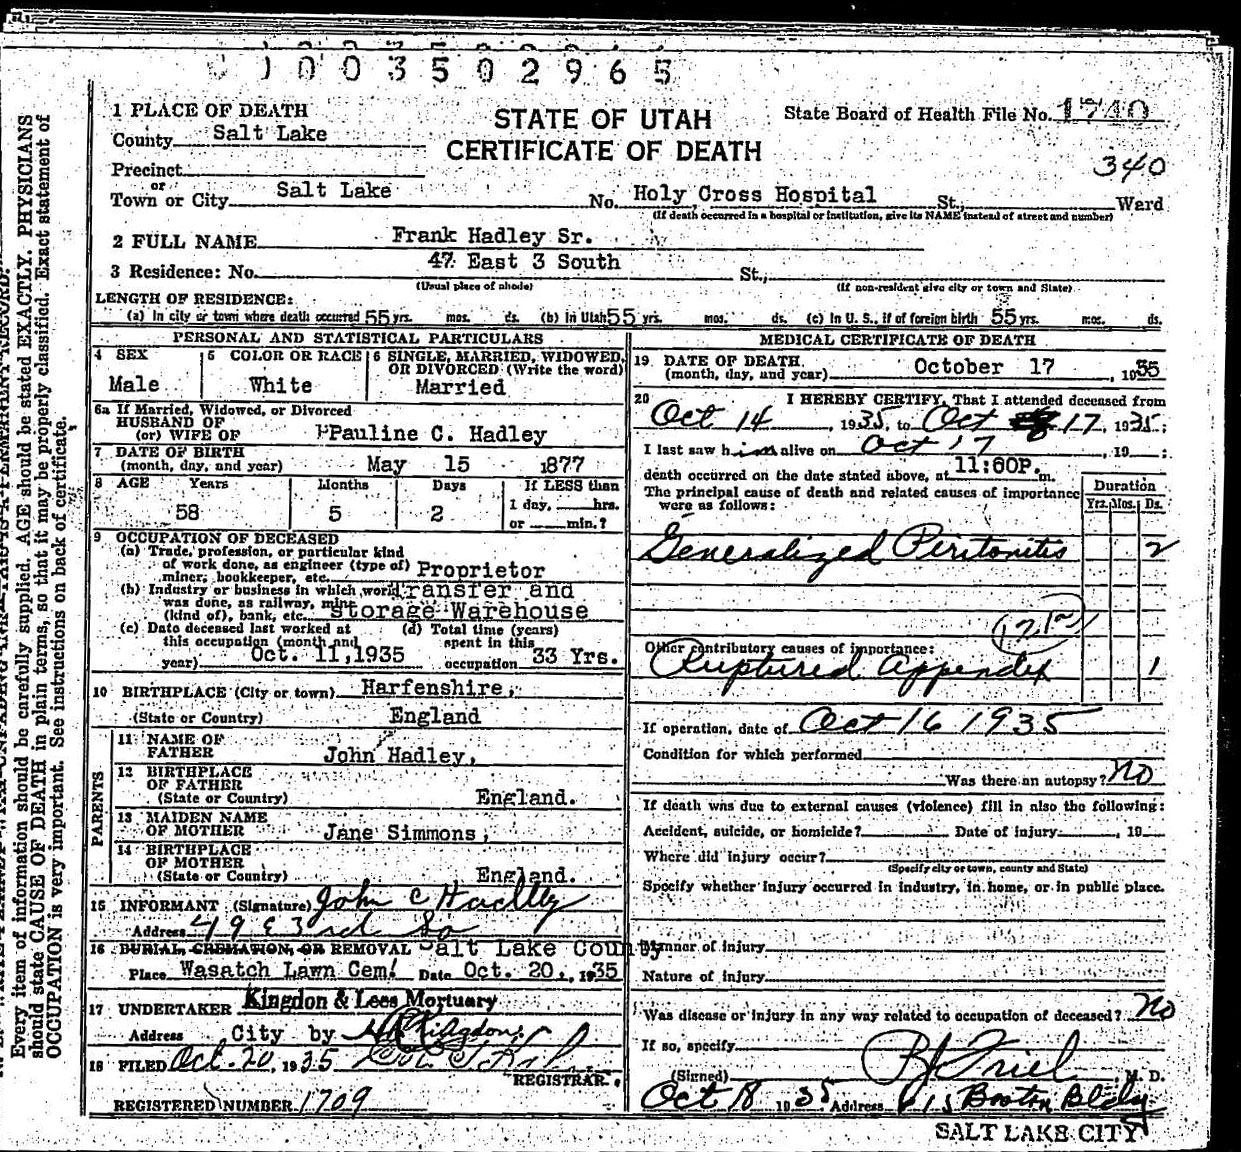 1003502965
1 PLACE OF DEATH
County Salt Lake
STATE OF UTAH
CERTIFICATE OF DEATH
State Board of Health File No. 1740
340
Precinct
or
Town or City Salt Lake No. Holy Cross Hospital St., Ward
(If death occurred in a hospital or institution, give its NAME instead of street and number)
2 FULL NAME Frank Hadley Sr.
3 Residence: No. 47 East 3 South St.,
(Usual place of abode) (If non-resident give city or town and State)
LENGTH OF RESIDENCE:
(a) In city or town where death occurred 55 yrs. mos. ds. (b) in Utah 55 yrs. mos. ds. (c) In U. S., if of foreign birth 55 yrs. mos. ds.
PERSONAL AND STATISTICAL PARTICULARS
4 SEX Male
5 COLOR OR RACE White
6 SINGLE, MARRIED, WIDOWED, OR DIVORCED (Write the word) Married
6a If Married, Widowed, or Divorced
HUSBAND OF
(or) WIFE OF Pauline C. Hadley
7 DATE OF BIRTH
(month, day, and year) May 15 1877
8 AGE Years Months Days If LESS than
58 5 2 1 day, hrs.
or min.?
9 OCCUPATION OF DECEASED
(a) Trade, profession, or particular kind
of work done, as engineer (type of)
miner, bookkeeper, etc. Proprietor
(b) Industry or business in which work Transfer and
was done, as railway, mine
(kind of), bank, etc. Storage Warehouse
(c) Date deceased last worked at
this occupation (month and
year) Oct. 11, 1935
(d) Total time (years)
spent in this
occupation 33 Yrs.
10 BIRTHPLACE (City or town) Harfenshire,
(State or Country) England
PARENTS
11 NAME OF
FATHER John Hadley,
12 BIRTHPLACE
OF FATHER
(State or Country) England.
13 MAIDEN NAME
OF MOTHER Jane Simmons,
14 BIRTHPLACE
OF MOTHER
(State or Country) England.
15 INFORMANT (Signature) John C Hadley
Address 49 E 3rd So
16 BURIAL, CREMATION, OR REMOVAL Salt Lake County
Place Wasatch Lawn Cem. Date Oct. 20, 1935
17 UNDERTAKER Kingdon & Lees Mortuary
Address City by
18 FILED Oct. 20, 1935
REGISTRAR.
REGISTERED NUMBER 1709
MEDICAL CERTIFICATE OF DEATH
19 DATE OF DEATH
(month, day, and year) October 17, 1935
20 I HEREBY CERTIFY, That I attended deceased from
Oct 14, 1935, to Oct 17, 1935;
I last saw him alive on Oct 17, 19 ;
death occurred on the date stated above, at 11:60P. m.
The principal cause of death and related causes of importance
were as follows:
Duration
Yrs. Mos. Ds.
Generalized Peritonitis 2
121
Other contributory causes of importance:
Ruptured appendix 1
If operation, date of Oct 16 1935
Condition for which performed
Was there an autopsy? No
If death was due to external causes (violence) fill in also the following:
Accident, suicide, or homicide? Date of injury , 19
Where did injury occur?
(Specify city or town, county and State)
Specify whether injury occurred in industry, in home, or in public place.
Manner of injury
Nature of injury
Was disease or injury in any way related to occupation of deceased? No
If so, specify
(Signed) M. D.
Oct 18 1935 Address 615 Boston Bldg
SALT LAKE CITY
Every item of information should be carefully supplied. AGE should be stated EXACTLY. PHYSICIANS
should state CAUSE OF DEATH in plain terms, so that it may be properly classified. Exact statement of
OCCUPATION is very important. See instructions on back of certificate.